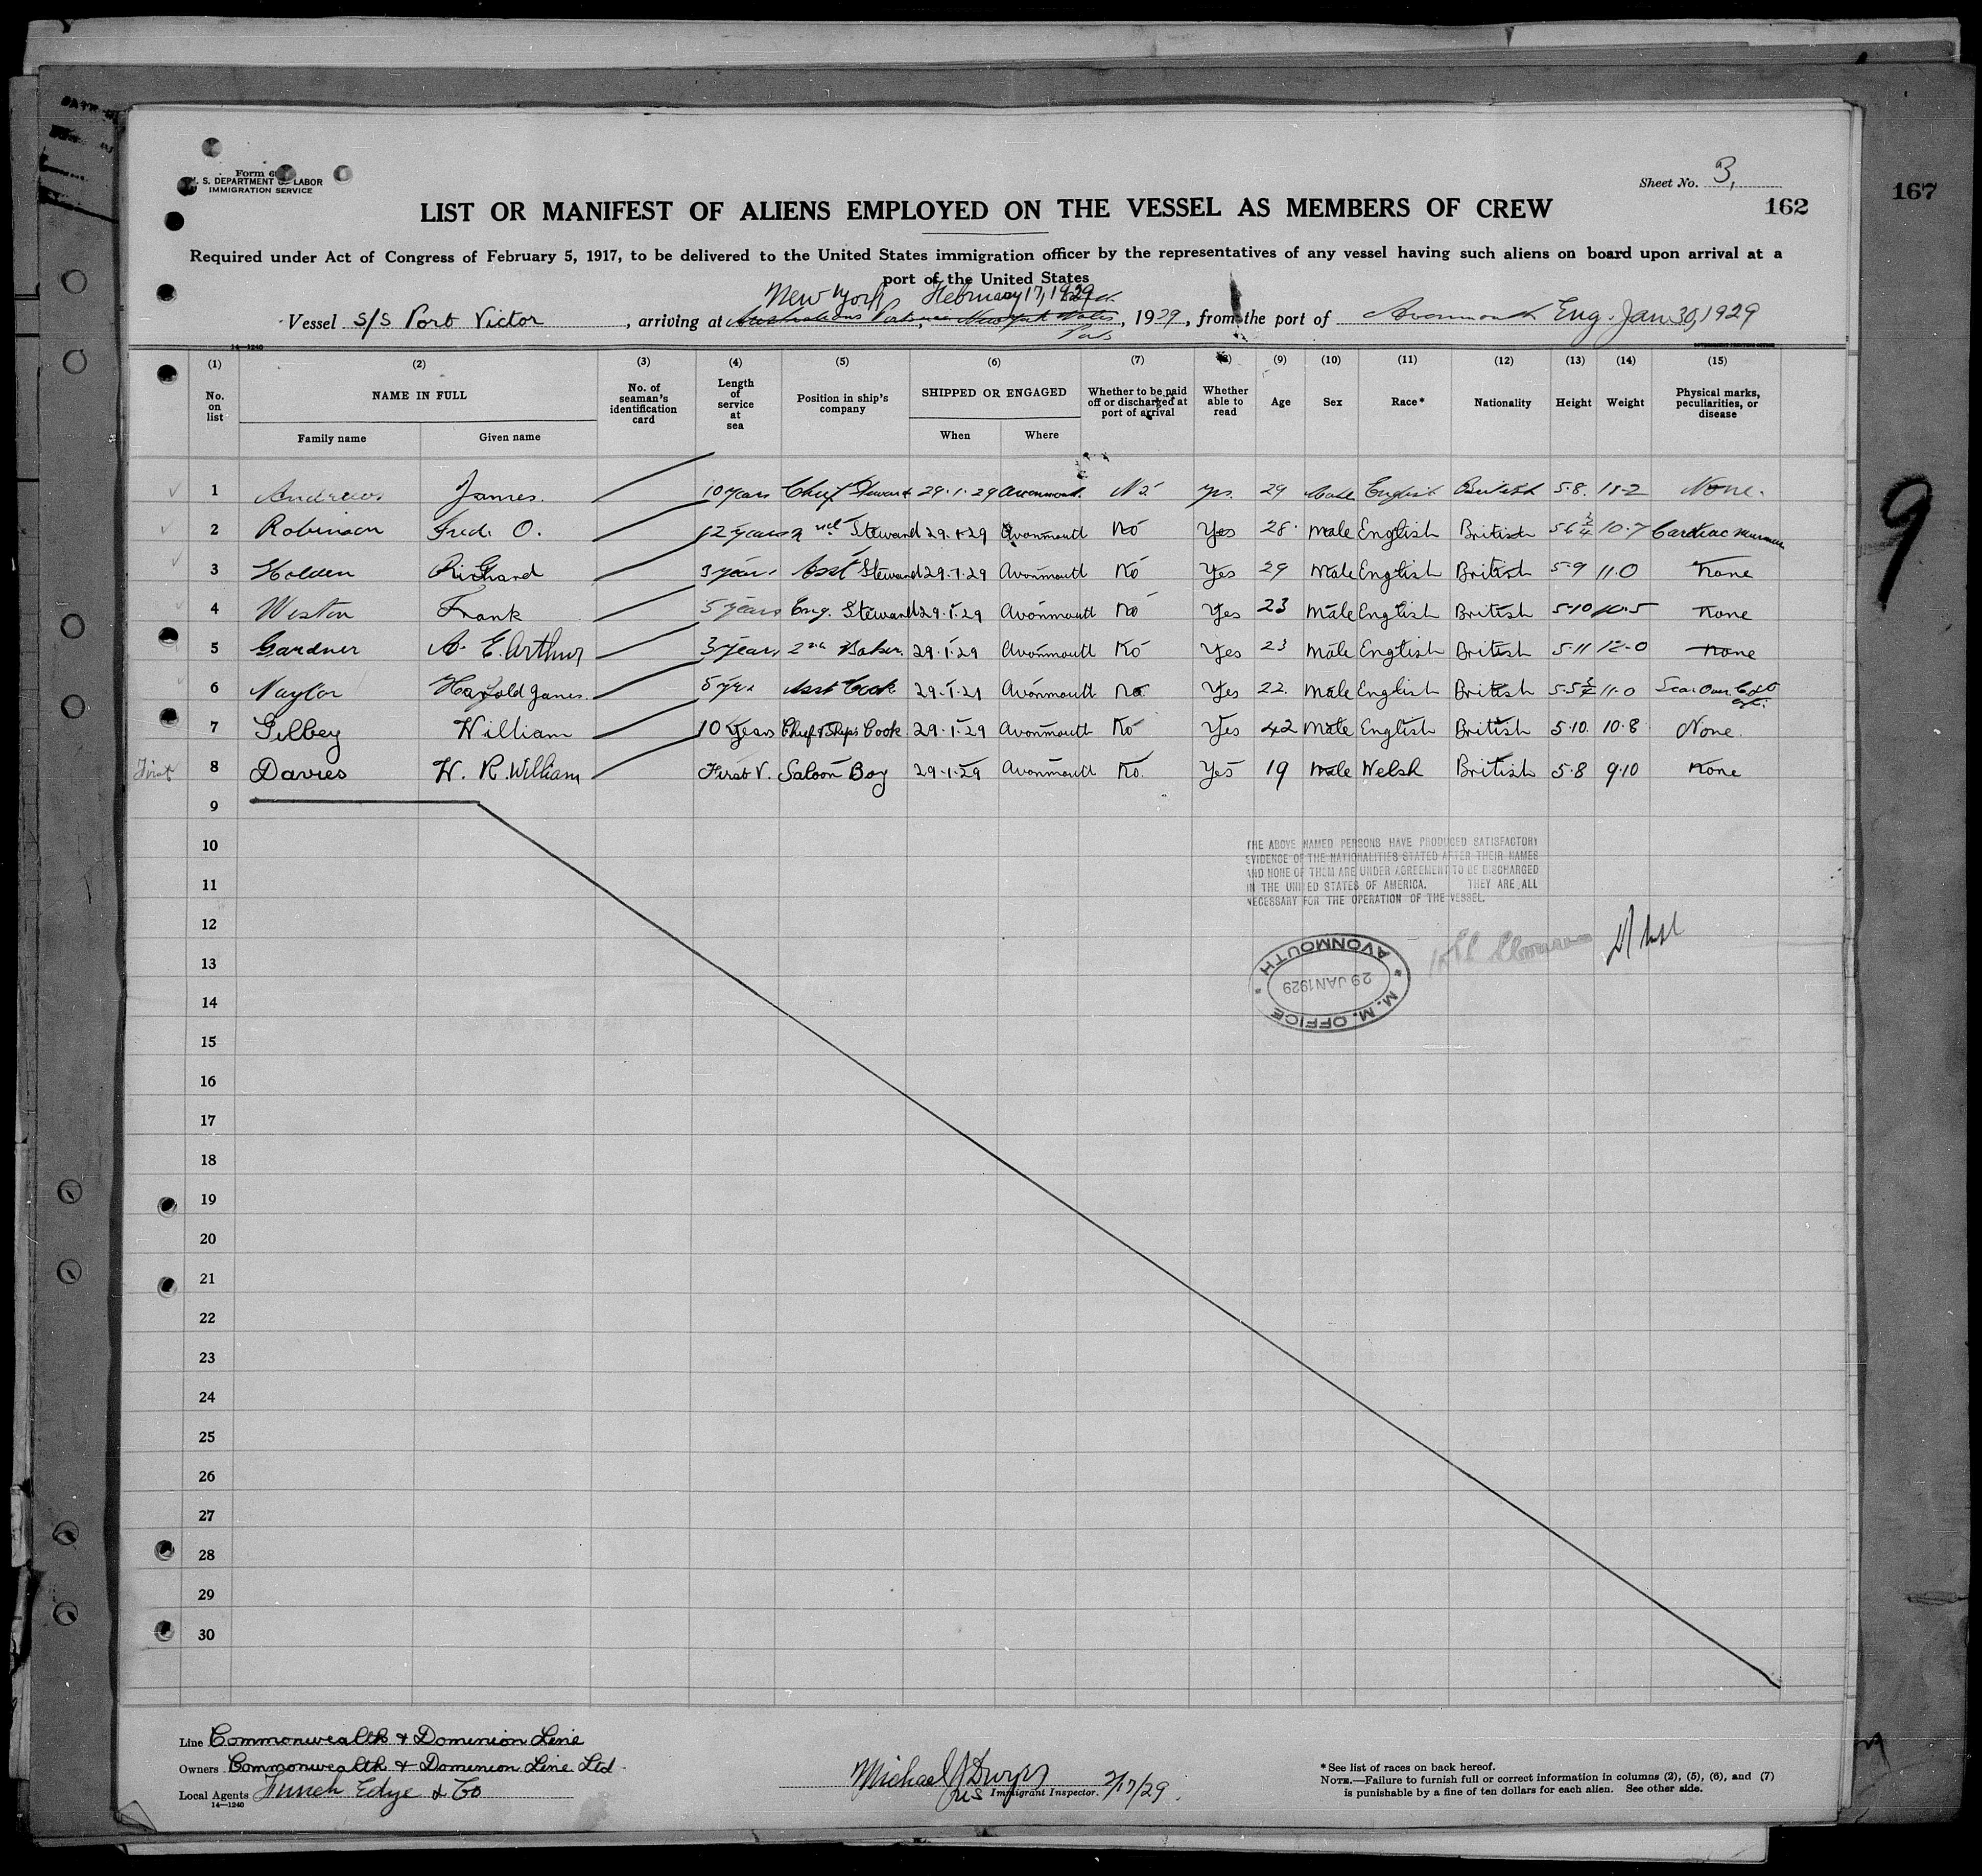 167
Form 6
U. S. DEPARTMENT OF LABOR
IMMIGRATION SERVICE
Sheet No. 3,
LIST OR MANIFEST OF ALIENS EMPLOYED ON THE VESSEL AS MEMBERS OF CREW
162
Required under Act of Congress of February 5, 1917, to be delivered to the United States immigration officer by the representatives of any vessel having such aliens on board upon arrival at a
port of the United States
New York February 17, 1929
Vessel S/S Port Victor, arriving at Australians Ports, via New York, 1929, from the port of Avonmouth Eng. Jan 30, 1929
14—1240
(1) (2) (3) (4) (5) (6) (7) (8) (9) (10) (11) (12) (13) (14) (15)
No. on list NAME IN FULL Family name Given name No. of seaman's identification card Length of service at sea Position in ship's company SHIPPED OR ENGAGED When Where Whether to be paid off or discharged at port of arrival Whether able to read Age Sex Race* Nationality Height Weight Physical marks, peculiarities, or disease
1 Andrews James. 10 years Chief Steward 29.1.29 Avonmouth No. yes. 29 Male English British 5.8. 11-2 None.
2 Robinson Fred. O. 12 years 2nd Steward 29.1.29 Avonmouth No Yes 28. Male English British 5 6 3/4 10.7 Cardiac murmur
3 Holden Richard 3 years Asst Steward 29.1.29 Avonmouth No Yes 29 Male English British 5-9 11.0 None
4 Weston Frank 5 years Eng. Steward 29.1.29 Avonmouth No Yes 23 Male English British 5.10 10.5 None
5 Gardner A. E. Arthur 3 years 2nd Baker. 29.1.29 Avonmouth No Yes 23 Male English British 5.11 12-0 None
6 Naylor Harold James. 5 yrs Asst Cook 29.1.29 Avonmouth No. Yes 22. Male English British 5.5 1/2 11.0 Scar Over
7 Gilbey William 10 Years Chief & Ships Cook 29.1.29 Avonmouth No Yes 42 Male English British 5.10. 10.8 None.
First 8 Davies W. R. William First V. Saloon Boy 29.1.29 Avonmouth No. Yes 19 Male Welsh British 5.8 9.10 None
9
10
11
12
13
14
15
16
17
18
19
20
21
22
23
24
25
26
27
28
29
30
9
THE ABOVE NAMED PERSONS HAVE PRODUCED SATISFACTORY
EVIDENCE OF THE NATIONALITIES STATED AFTER THEIR NAMES
AND NONE OF THEM ARE UNDER AGREEMENT TO BE DISCHARGED
IN THE UNITED STATES OF AMERICA. THEY ARE ALL
NECESSARY FOR THE OPERATION OF THE VESSEL.
M. M. OFFICE
29 JAN 1929
AVONMOUTH
Line Commonwealth & Dominion Line
Owners Commonwealth & Dominion Line Ltd.
Local Agents Funch Edye & Co
14—1240
Michael J Dwyer
Immigrant Inspector. 2/17/29.
*See list of races on back hereof.
NOTE.—Failure to furnish full or correct information in columns (2), (5), (6), and (7)
is punishable by a fine of ten dollars for each alien. See other side.